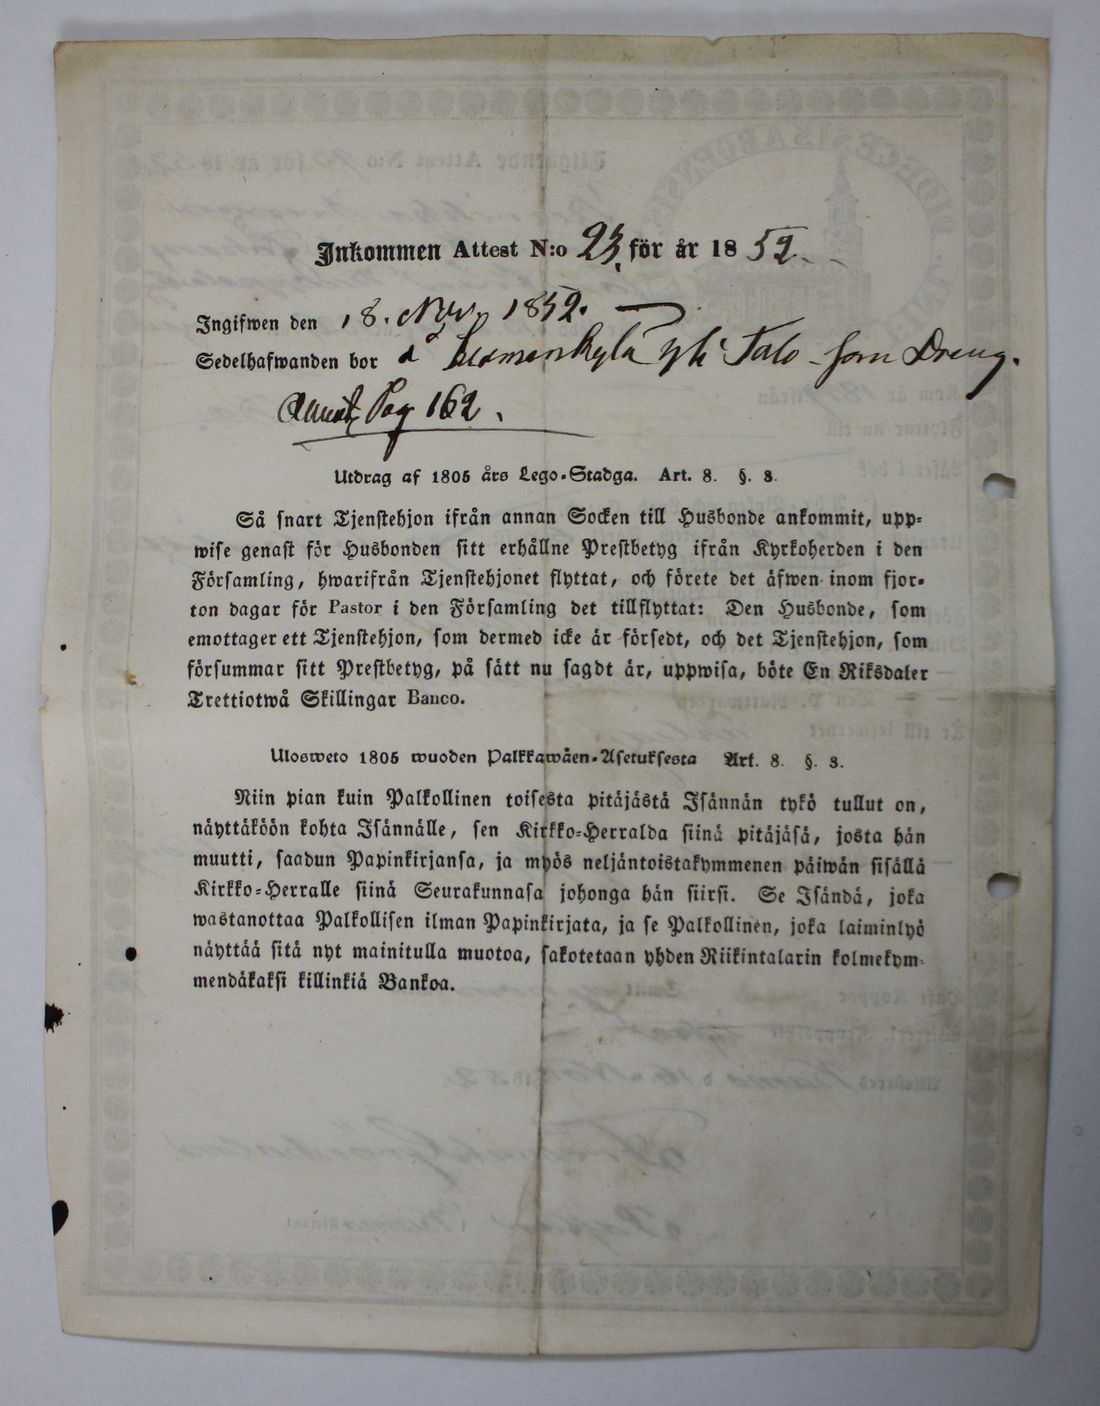 Inkommen Attest N:o 23, för år 1852.
Ingifwen den 18. Nov. 1852.
Sedelhafwanden bor å yli Talo som Dreng.
Pag 162.
Utdrag af 1805 års Lego-Stadga. Art. 8. §. 3.
Så snart Tjenstehjon ifrån annan Socken till Husbonde ankommit, upp-
wise genast för Husbonden sitt erhållne Prestbetyg ifrån Kyrkoherden i den
Församling, hwarifrån Tjenstehjonet flyttat, och förete det äfwen inom fjor-
ton dagar för Pastor i den Församling det tillflyttat: Den Husbonde, som
emottager ett Tjenstehjon, som dermed icke är försedt, och det Tjenstehjon, som
försummar sitt Prestbetyg, på sätt nu sagdt är, uppwisa, böte En Riksdaler
Trettiotwå Skillingar Banco.
Ulosweto 1805 wuoden Palkkawäen-Asetuksesta Art. 8. §. 3.
Niin pian kuin Palkollinen toisesta pitäjästä Isännän tykö tullut on,
näyttäköön kohta Isännälle, sen Kirkko-Herralda siinä pitäjäsä, josta hän
muutti, saadun Papinkirjansa, ja myös neljäntoistakymmenen päiwän sisällä
Kirkko-Herralle siinä Seurakunnasa johonga hän siirsi. Se Isändä, joka
wastanottaa Palkollisen ilman Papinkirjata, ja se Palkollinen, joka laiminlyö
näyttää sitä nyt mainitulla muotoa, sakotetaan yhden Riikintalarin kolmekym-
mendäkaksi killinkiä Bankoa.